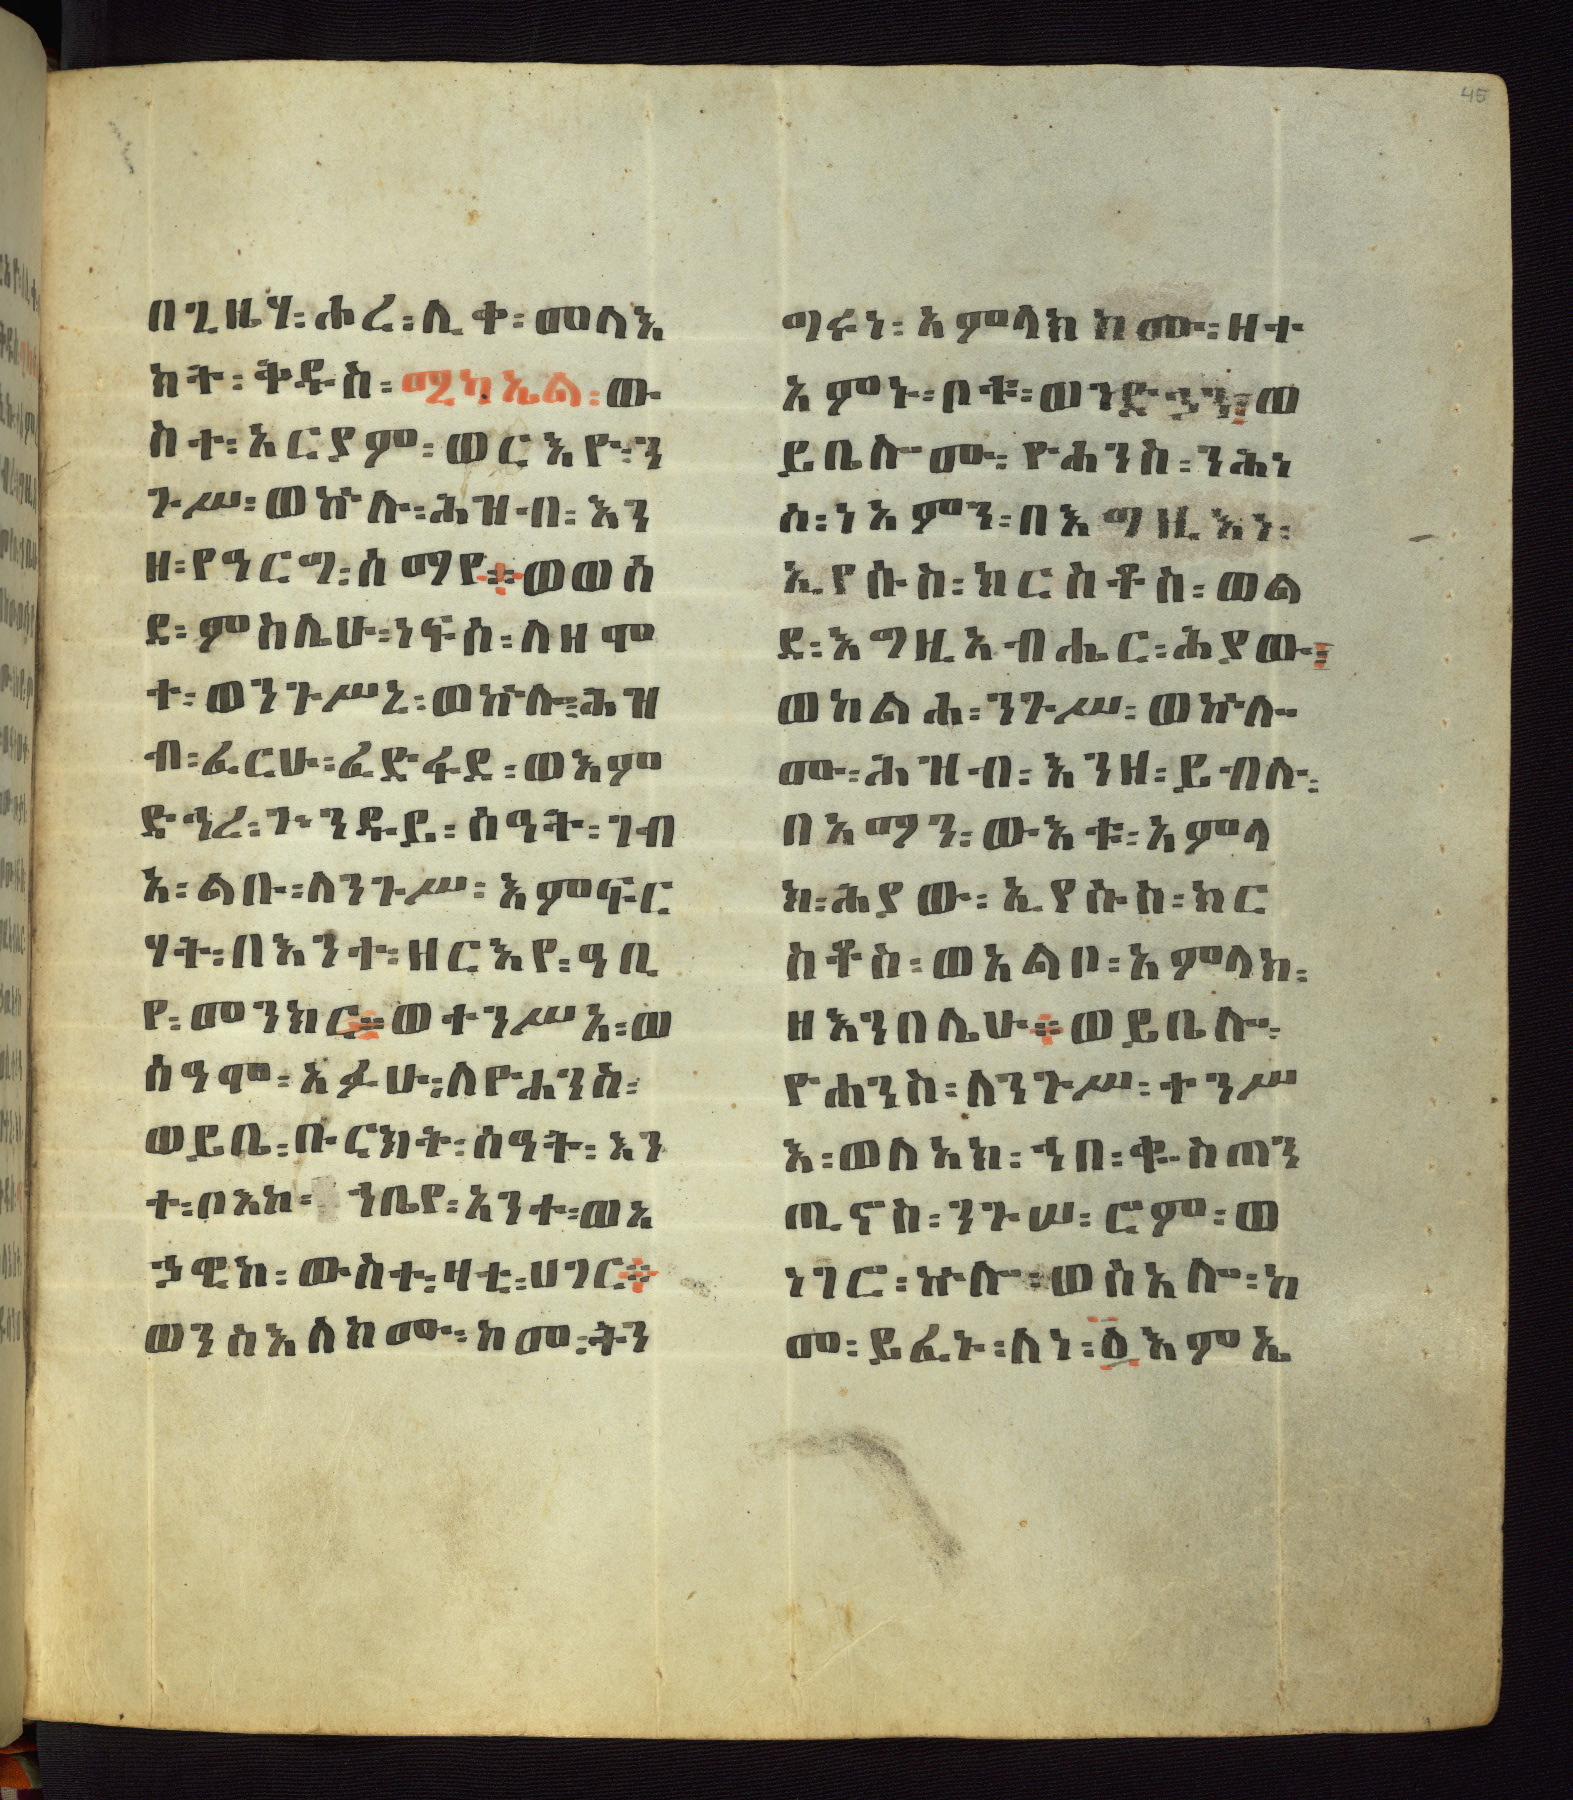 በጊዜሃ፡ሖረ፡ሊቀ፡መላእ
ክት፡ቅዱስ፡ሚካኤል፡ው
ስተ፡አርያም፡ወርእዮ፡ን
ጉሥ፡ወኵሉ፡ሕዝብ፡እን
ዘ፡የዓርግ፡ሰማየ፨ወወሰ
ደ፡ምስሌሁ፡ነፍሰ፡ለዘሞ
ተ፡ወንጉሥኒ፡ወኵሉ፡ሕዝ
ብ፡ፈርሁ፡ፈድፋደ፡ወእም
ድኅረ፡ጕንዱይ፡ሰዓት፡ገብ
አ፡ልቡ፡ለንጉሥ፡እምፍር
ሃት፡በእንተ፡ዘርእየ፡ዓቢ
የ፡መንክር፨ወተንሥአ፡ወ
ሰዓሞ፡አፉሁ፡ለዮሐንስ፡
ወይቤ፡ቡርክት፡ሰዓት፡እን
ተ፡ቦእከ፡ኀቤየ፡አንተ፡ወአ
ኃዊከ፡ውስተ፡ዛቲ፡ሀገር፨
ወንስእለከሙ፡ከመ፡ትን
ግሩነ፡አምላክክሙ፡ዘተ
አምኑ፡ቦቱ፡ወንድኃን፡ወ
ይቤሎሙ፡ዮሐንስ፡ንሕነ
ሰ፡ነአምን፡በእግዚእነ፡
ኢየሱስ፡ክርስቶስ፡ወል
ደ፡እግዚአብሔር፡ሕያው፡
ወከልሐ፡ንጉሥ፡ወኵሎ
ሙ፡ሕዝብ፡እንዘ፡ይብሉ፡
በአማን፡ውእቱ፡አምላ
ክ፡ሕያው፡ኢየሱስ፡ክር
ስቶስ፡ወአልቦ፡አምላክ፡
ዘእንበሌሁ፨ወይቤሎ፡
ዮሐንስ፡ለንጉሥ፡ተንሥ
እ፡ወለአክ፡ኀበ፡ቈስጠን
ጢኖስ፡ንጉሠ፡ሮም፡ወ
ነገሮ፡ኵሎ፡ወሰአሎ፡ከ
መ፡ይፈኑ፡ለነ፡፩እምኤ